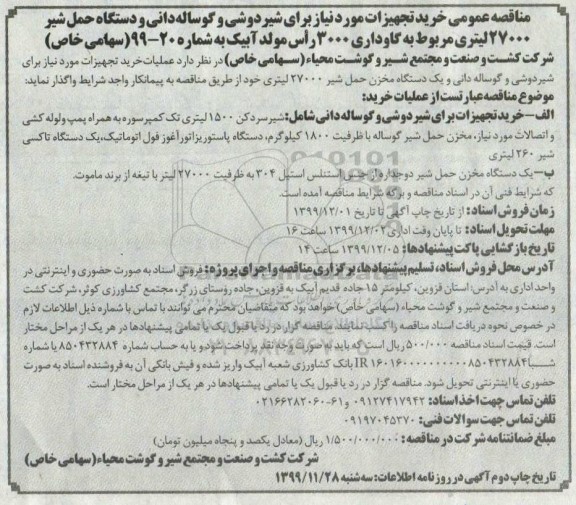 مناقصه عمومی خرید تجهیزات مورد نیاز برای شیر دوشی و گوساله‌دانی و دستگاه حمل شیر
۲۷۰۰۰ لیتری مربوط به گاوداری ۳۰۰۰ رأس مولد آبیک به شماره ۲۰-۹۹ (سهامی خاص)
شرکت کشت و صنعت و مجتمع شیر و گوشت محیاء (سهامی خاص) در نظر دارد عملیات خرید تجهیزات مورد نیاز برای
شیر دوشی و گوساله دانی و یک دستگاه مخزن حمل شیر ۲۷۰۰۰ لیتری خود از طریق مناقصه به پیمانکار واجد شرایط واگذار نماید:
موضوع مناقصه عبارتست از عملیات خرید:
الف- خرید تجهیزات برای شیر دوشی و گوساله دانی شامل: شیر سرد کن ۱۵۰۰ لیتری تک کمپرسوره به همراه پمپ و لوله کشی
و اتصالات مورد نیاز، مخزن حمل شیر گوساله با ظرفیت ۱۸۰۰ کیلوگرم، دستگاه پاستوریزاتور آغوز فول اتوماتیک، یک دستگاه تاکسی
شیر ۲۶۰ لیتری
ب- یک دستگاه مخزن حمل شیر دو جداره از جنس استنلس استیل ۳۰۴ به ظرفیت ۲۷۰۰۰ لیتر با تیغه از برند ماموت.
که شرایط فنی آن در اسناد مناقصه و برگه شرایط مناقصه آمده است.
زمان فروش اسناد: از تاریخ چاپ آگهی تا تاریخ ۱۳۹۹/۱۲/۰۱
مهلت تحویل اسناد: تا پایان وقت اداری ۱۳۹۹/۱۲/۰۲ ساعت ۱۶
تاریخ بازگشایی پاکت پیشنهادها: ۱۳۹۹/۱۲/۰۵ ساعت ۱۴
آدرس محل فروش اسناد، تسلیم پیشنهادها، برگزاری مناقصه و اجرای پروژه: فروش اسناد به صورت حضوری و اینترنتی در
واحد اداری به آدرس: استان قزوین، کیلومتر ۱۵ جاده قدیم آبیک به قزوین، جاده روستای زرگر، مجتمع کشاورزی کوثر، شرکت کشت
و صنعت و مجتمع شیر و گوشت محیاء (سهامی خاص) خواهد بود که متقاضیان محترم می توانند با تماس با شماره ذیل اطلاعات لازم
در خصوص نحوه دریافت اسناد مناقصه را کسب نمایند. مناقصه گزار در رد یا قبول یک یا تمامی پیشنهادها در هر یک از مراحل مختار
است. قیمت اسناد مناقصه ۵۰۰/۰۰۰ ریال است که باید به صورت وجه نقد پرداخت شود و یا به حساب شماره ۸۵۰۴۳۲۸۸۴ یا شماره
شبا IR ۱۶۰۱۶۰۰۰۰۰۰۰۰۰۰۰۸۵۰۴۳۲۸۸۴ بانک کشاورزی شعبه آبیک واریز شده و فیش بانکی آن به فروشنده اسناد به صورت
حضوری یا اینترنتی تحویل شود. مناقصه گزار در رد یا قبول یک یا تمامی پیشنهادها در هر یک از مراحل مختار است.
تلفن تماس جهت اخذ اسناد: ۰۹۱۲۷۴۱۷۹۴۲ و ۶۱-۰۲۱۶۶۲۸۲۰۶۰
تلفن تماس جهت سوالات فنی: ۰۹۱۹۷۰۴۵۳۷۰
مبلغ ضمانتنامه شرکت در مناقصه: ۱/۵۰۰/۰۰۰/۰۰۰ ریال (معادل یکصد و پنجاه میلیون تومان)
شرکت کشت و صنعت و مجتمع شیر و گوشت محیاء (سهامی خاص)
تاریخ چاپ دوم آگهی در روزنامه اطلاعات: سه شنبه ۱۳۹۹/۱۱/۲۸